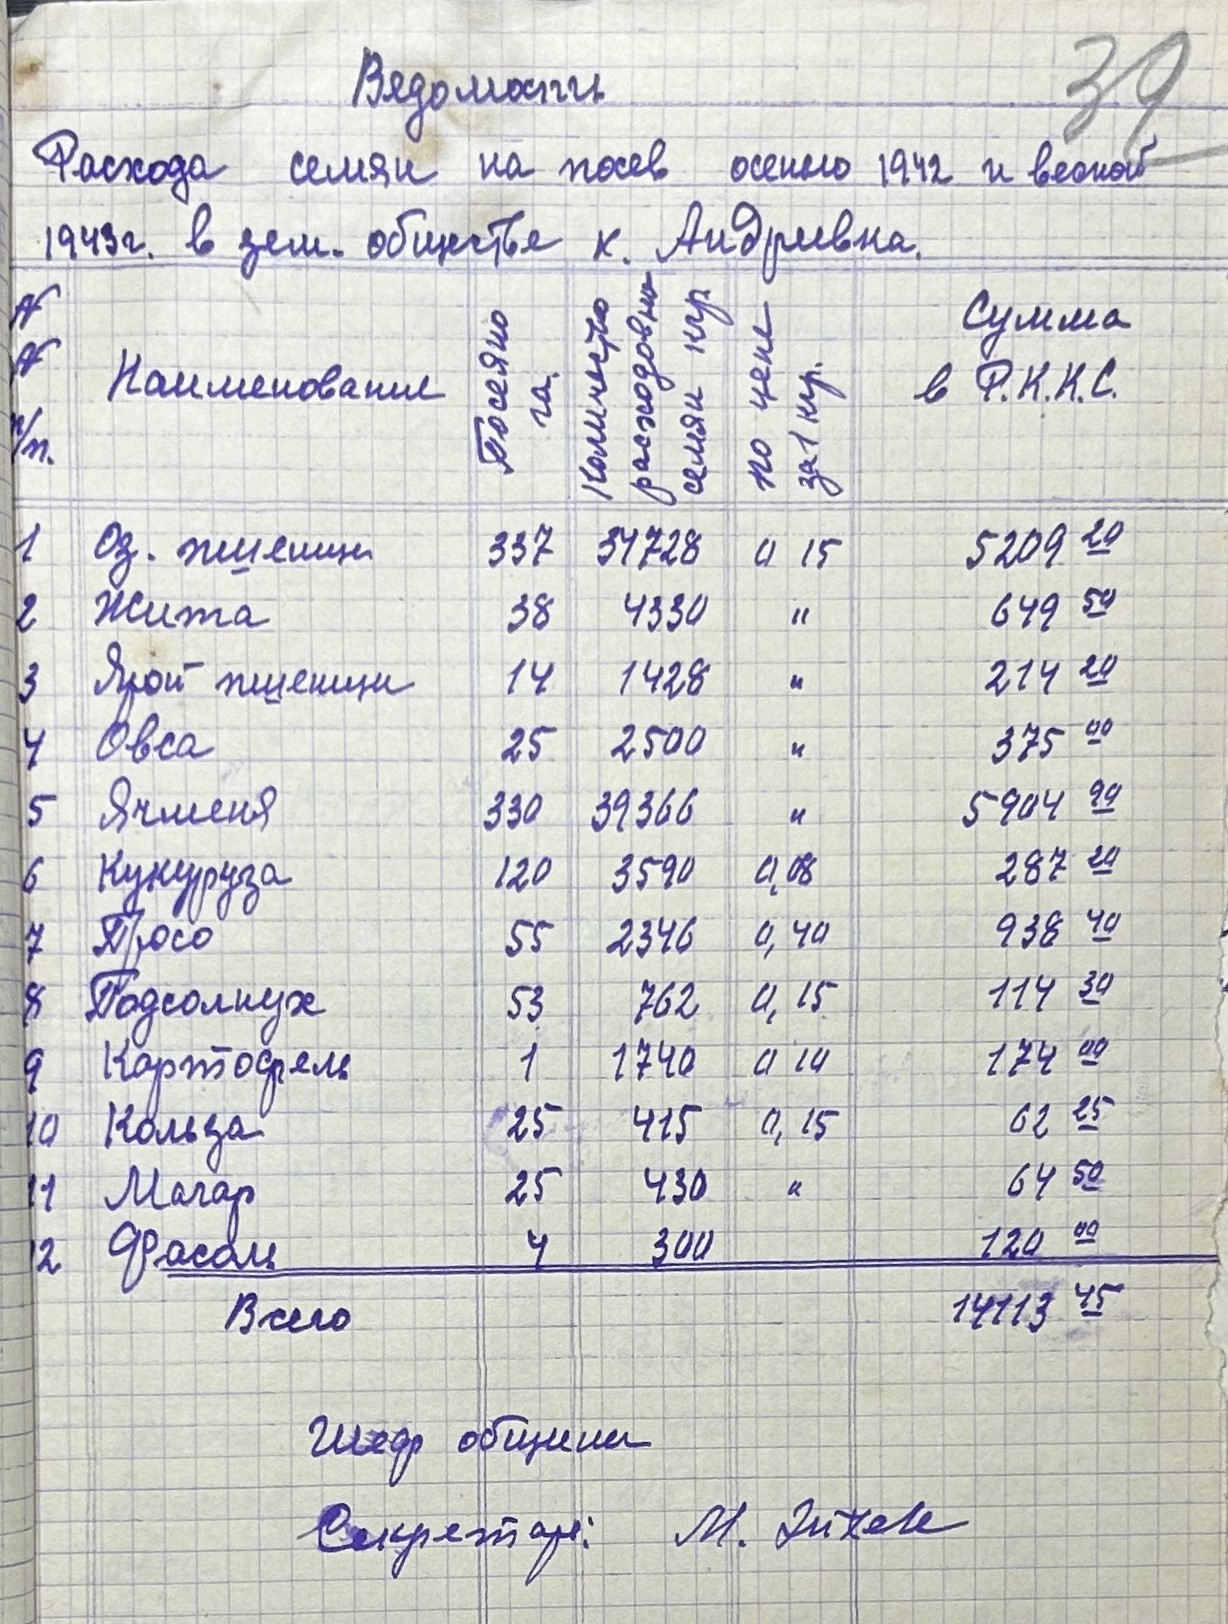 39
Вядомость
Расхода семян на посев осенью 1942 и весной
1943г. в зем. обществе х. Андривна.
№ № п/п. Наименование Посеяно га. Количество расходовно семян кгр по цене за 1 кгр. Сумма в Р.К.К.С.
1 Оз. пшеници 337 34728 0 15 5209 20
2 Жита 38 4330 " 649 50
3 Ярой пшеници 14 1428 " 214 20
4 Овса 25 2500 " 375 00
5 Ячменя 330 39366 " 5904 90
6 Кукуруза 120 3590 0,08 287 20
7 Просо 55 2346 0,40 938 40
8 Подсолнух 53 762 0,15 114 30
9 Картофель 1 1740 0 10 174 00
10 Кольза 25 415 0,15 62 25
11 Магар 25 430 " 64 50
12 Фасоль 4 300 120 00
Всего 14113 45
Шедр общини
Секретарь: М.